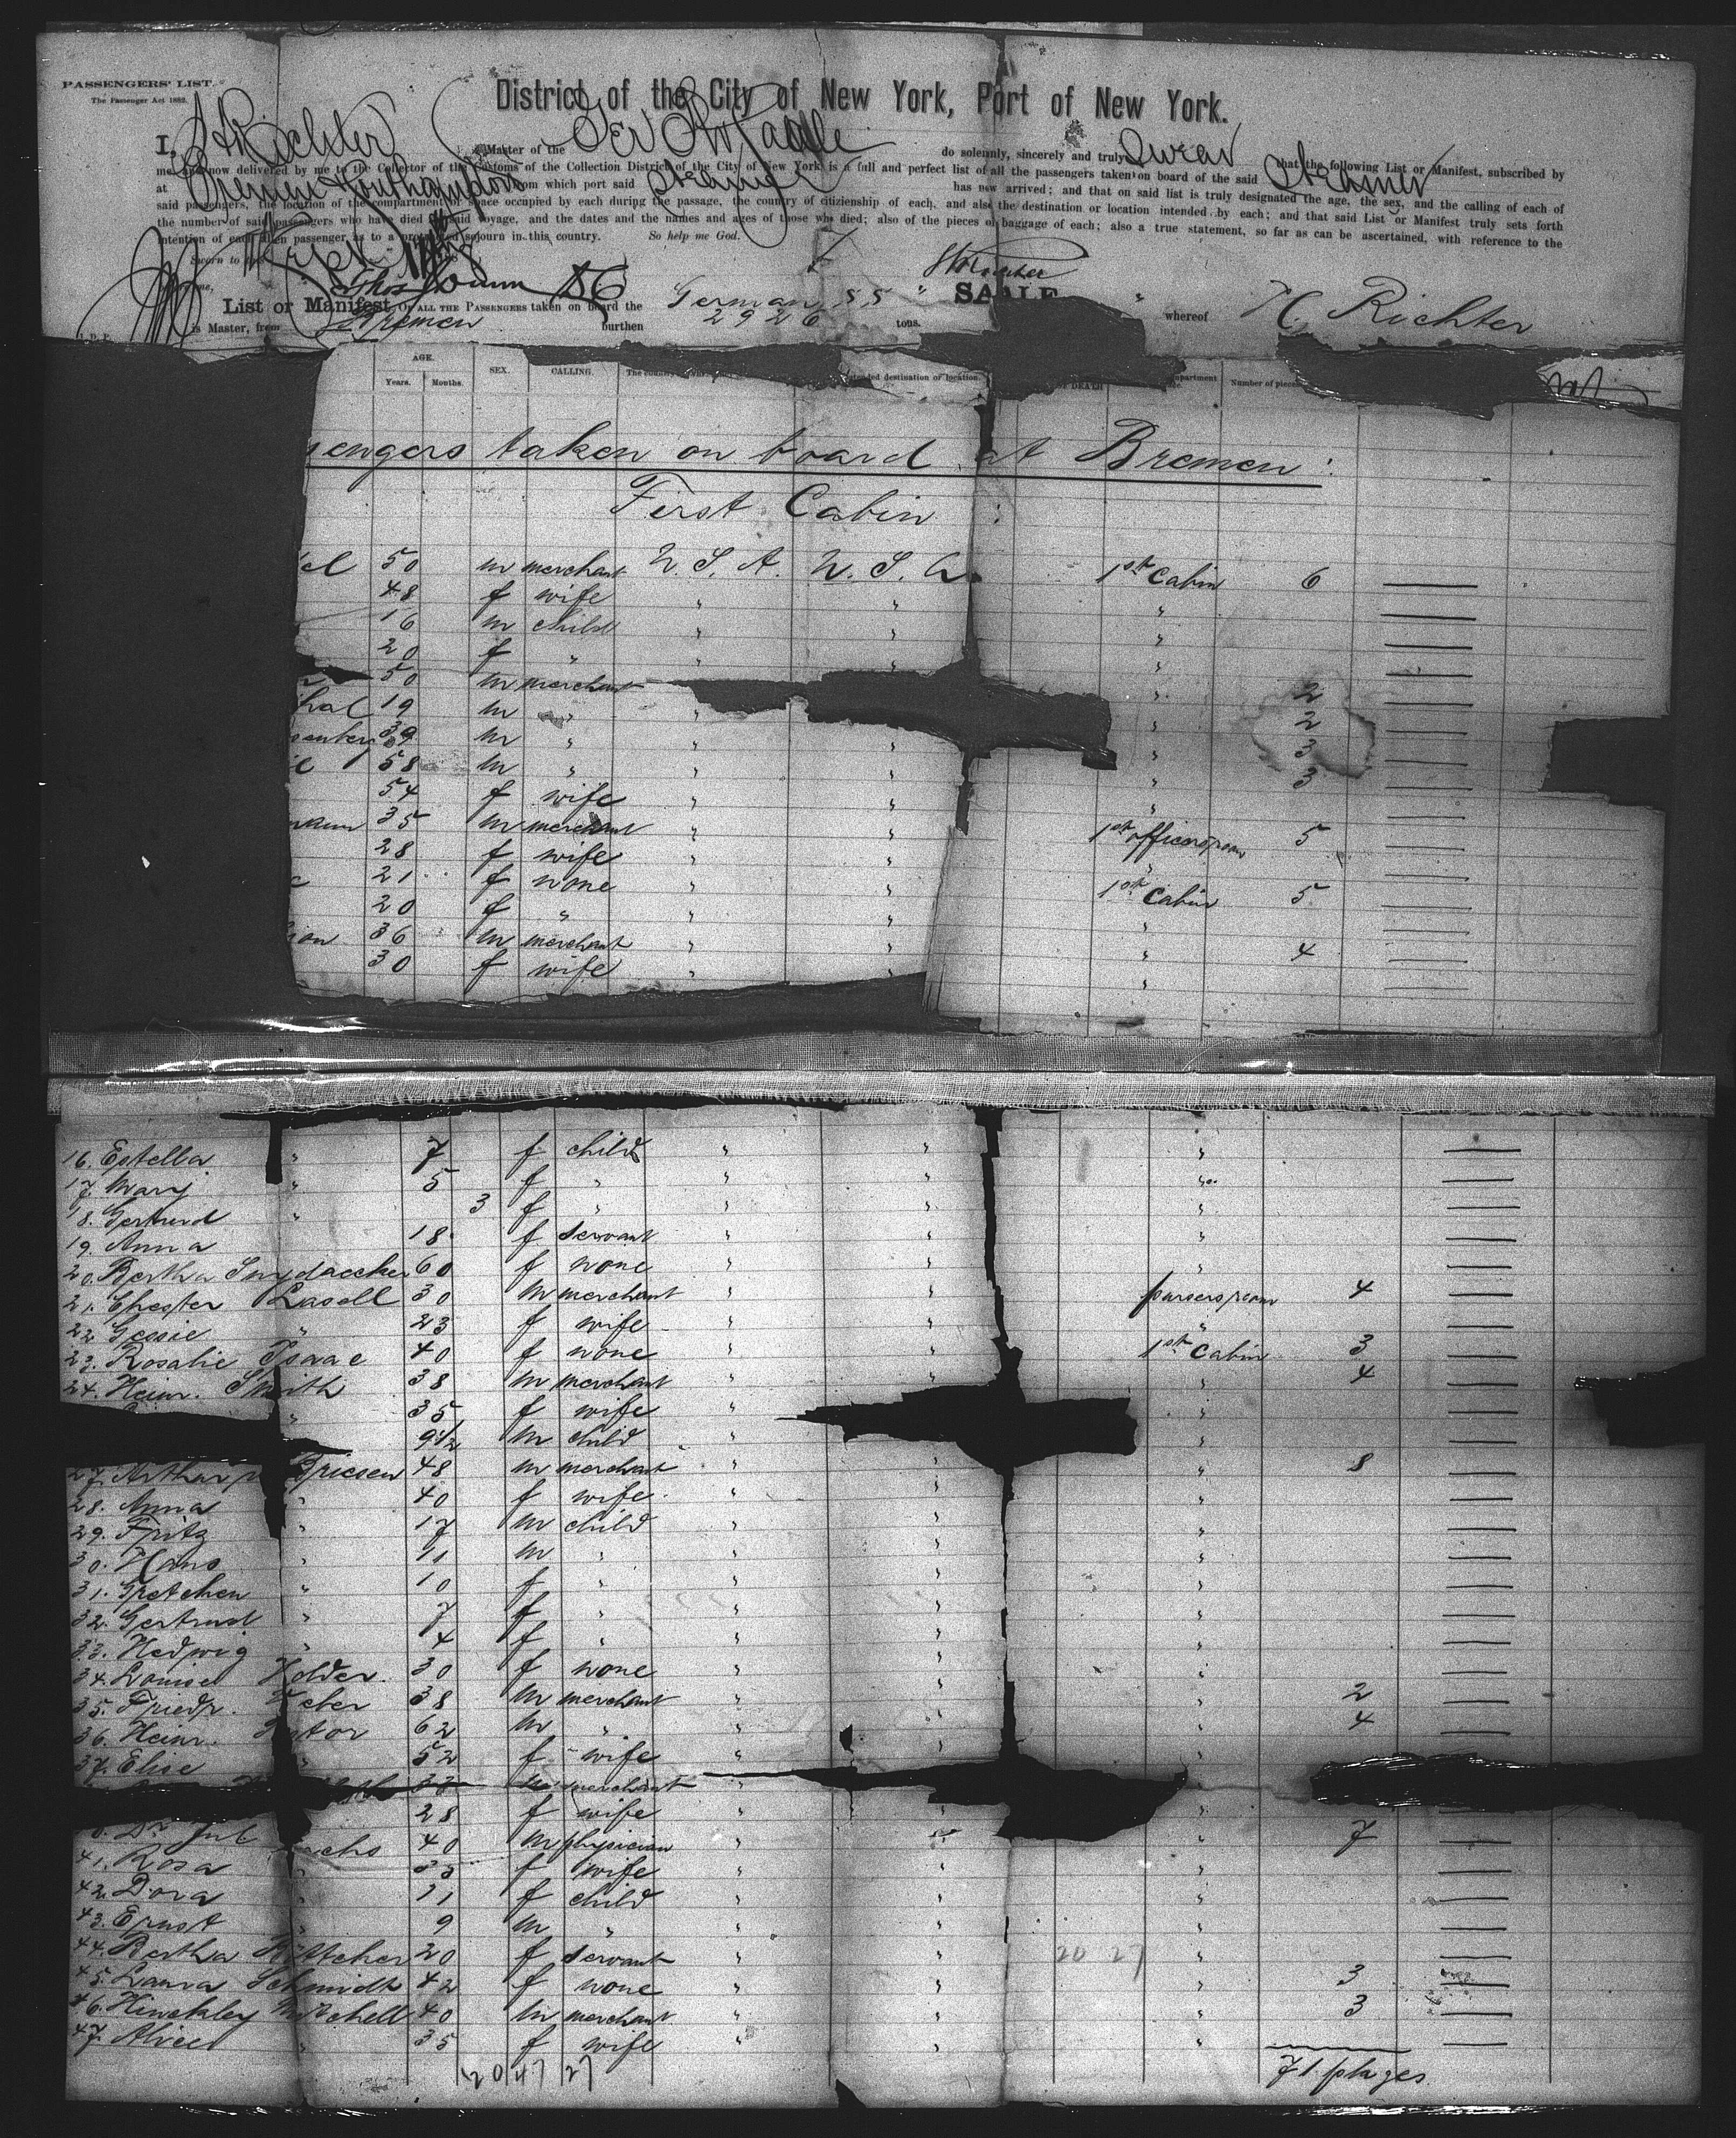 PASSENGERS' LIST.
The Passenger Act 1882.
District of the City of New York, Port of New York.
I, H Richter Master of the Ger Str Saale do solemnly, sincerely and truly Swear that the following List or Manifest, subscribed by
me and now delivered by me to the Collector of the Customs of the Collection District of the City of New York is a full and perfect list of all the passengers taken on board of the said Steamer
at Bremen Southampton from which port said Steamer has now arrived; and that on said list is truly designated the age, the sex, and the calling of each of
said passengers, the location of the compartment or space occupied by each during the passage, the country of citizenship of each, and also the destination or location intended by each; and that said List or Manifest truly sets forth
the number of said passengers who have died on said voyage, and the dates and the names and ages of those who died; also of the pieces of baggage of each; also a true statement, so far as can be ascertained, with reference to the
intention of each alien passenger as to a protracted sojourn in this country. So help me God.
Sworn to
H Richter
List or Manifest OF ALL THE PASSENGERS taken on board the German SS " SAALE "
is Master, from Bremen burthen 2926 tons. whereof H. Richter
AGE. Years. Months. SEX. CALLING. destination or location. DEATH Number of pieces
sengers taken on board at Bremen:
First Cabin :
el 50 m merchant U.S.A. U.S.A. 1st Cabin 6
48 f wife " " "
16 m child " " "
20 f " " " "
50 m merchant " 2
hal 19 m " " " " 2
senberg 39 m " " " " 3
58 m " " " " 3
54 f wife " " "
mann 35 m merchant " " 1st officersroom 5
28 f wife " " "
21 f none " " 1st Cabin 5
20 f " " " "
son 36 m merchant " " " 4
30 f wife " " "
16. Estella " 7 f child " " "
17. Mary " 5 f " " " "
18. Gertrud " 3 f " " " "
19. Anna 18 f servant " " "
20. Bertha Snydaecker 60 f none " " "
21. Chester Lasell 30 m merchant " " pursersroom 4
22. Jessie " 23 f wife " " "
23. Rosalie Isaac 40 f none " " 1st Cabin 3
24. Heinr. Smith 38 m merchant " " " 4
" 35 f wife " "
9 1/2 m child " "
27. Arthur v. Briesen 48 m merchant " " " 8
28. Anna " 40 f wife " " "
29. Fritz " 17 m child " " "
30. Hans " 11 m " " " "
31. Gretchen " 10 f " " " "
32. Gertrud " 7 f " " " "
33. Hedwig " 4 f " " " "
34. Louise Holder 30 f none " " "
35. Friedr. 38 m merchant " " " 2
36. Heinr. 62 m " " " " 4
37. Elise " 52 f wife " " "
33 m merchant "
28 f wife " " "
Dr. Jul. achs 40 m physician " " 7
41. Rosa " 33 f wife " " "
42. Dora " 11 f child " " "
43. Ernst " 9 m " " " "
44. Bertha Böttcher 20 f servant " " 20 27 "
45. Laura Schmidt 42 f none " " " 3
46. Hinckley Mitchell 40 m merchant " " " 3
47. Alice " 35 f wife " " "
20 47 27
71 pkges